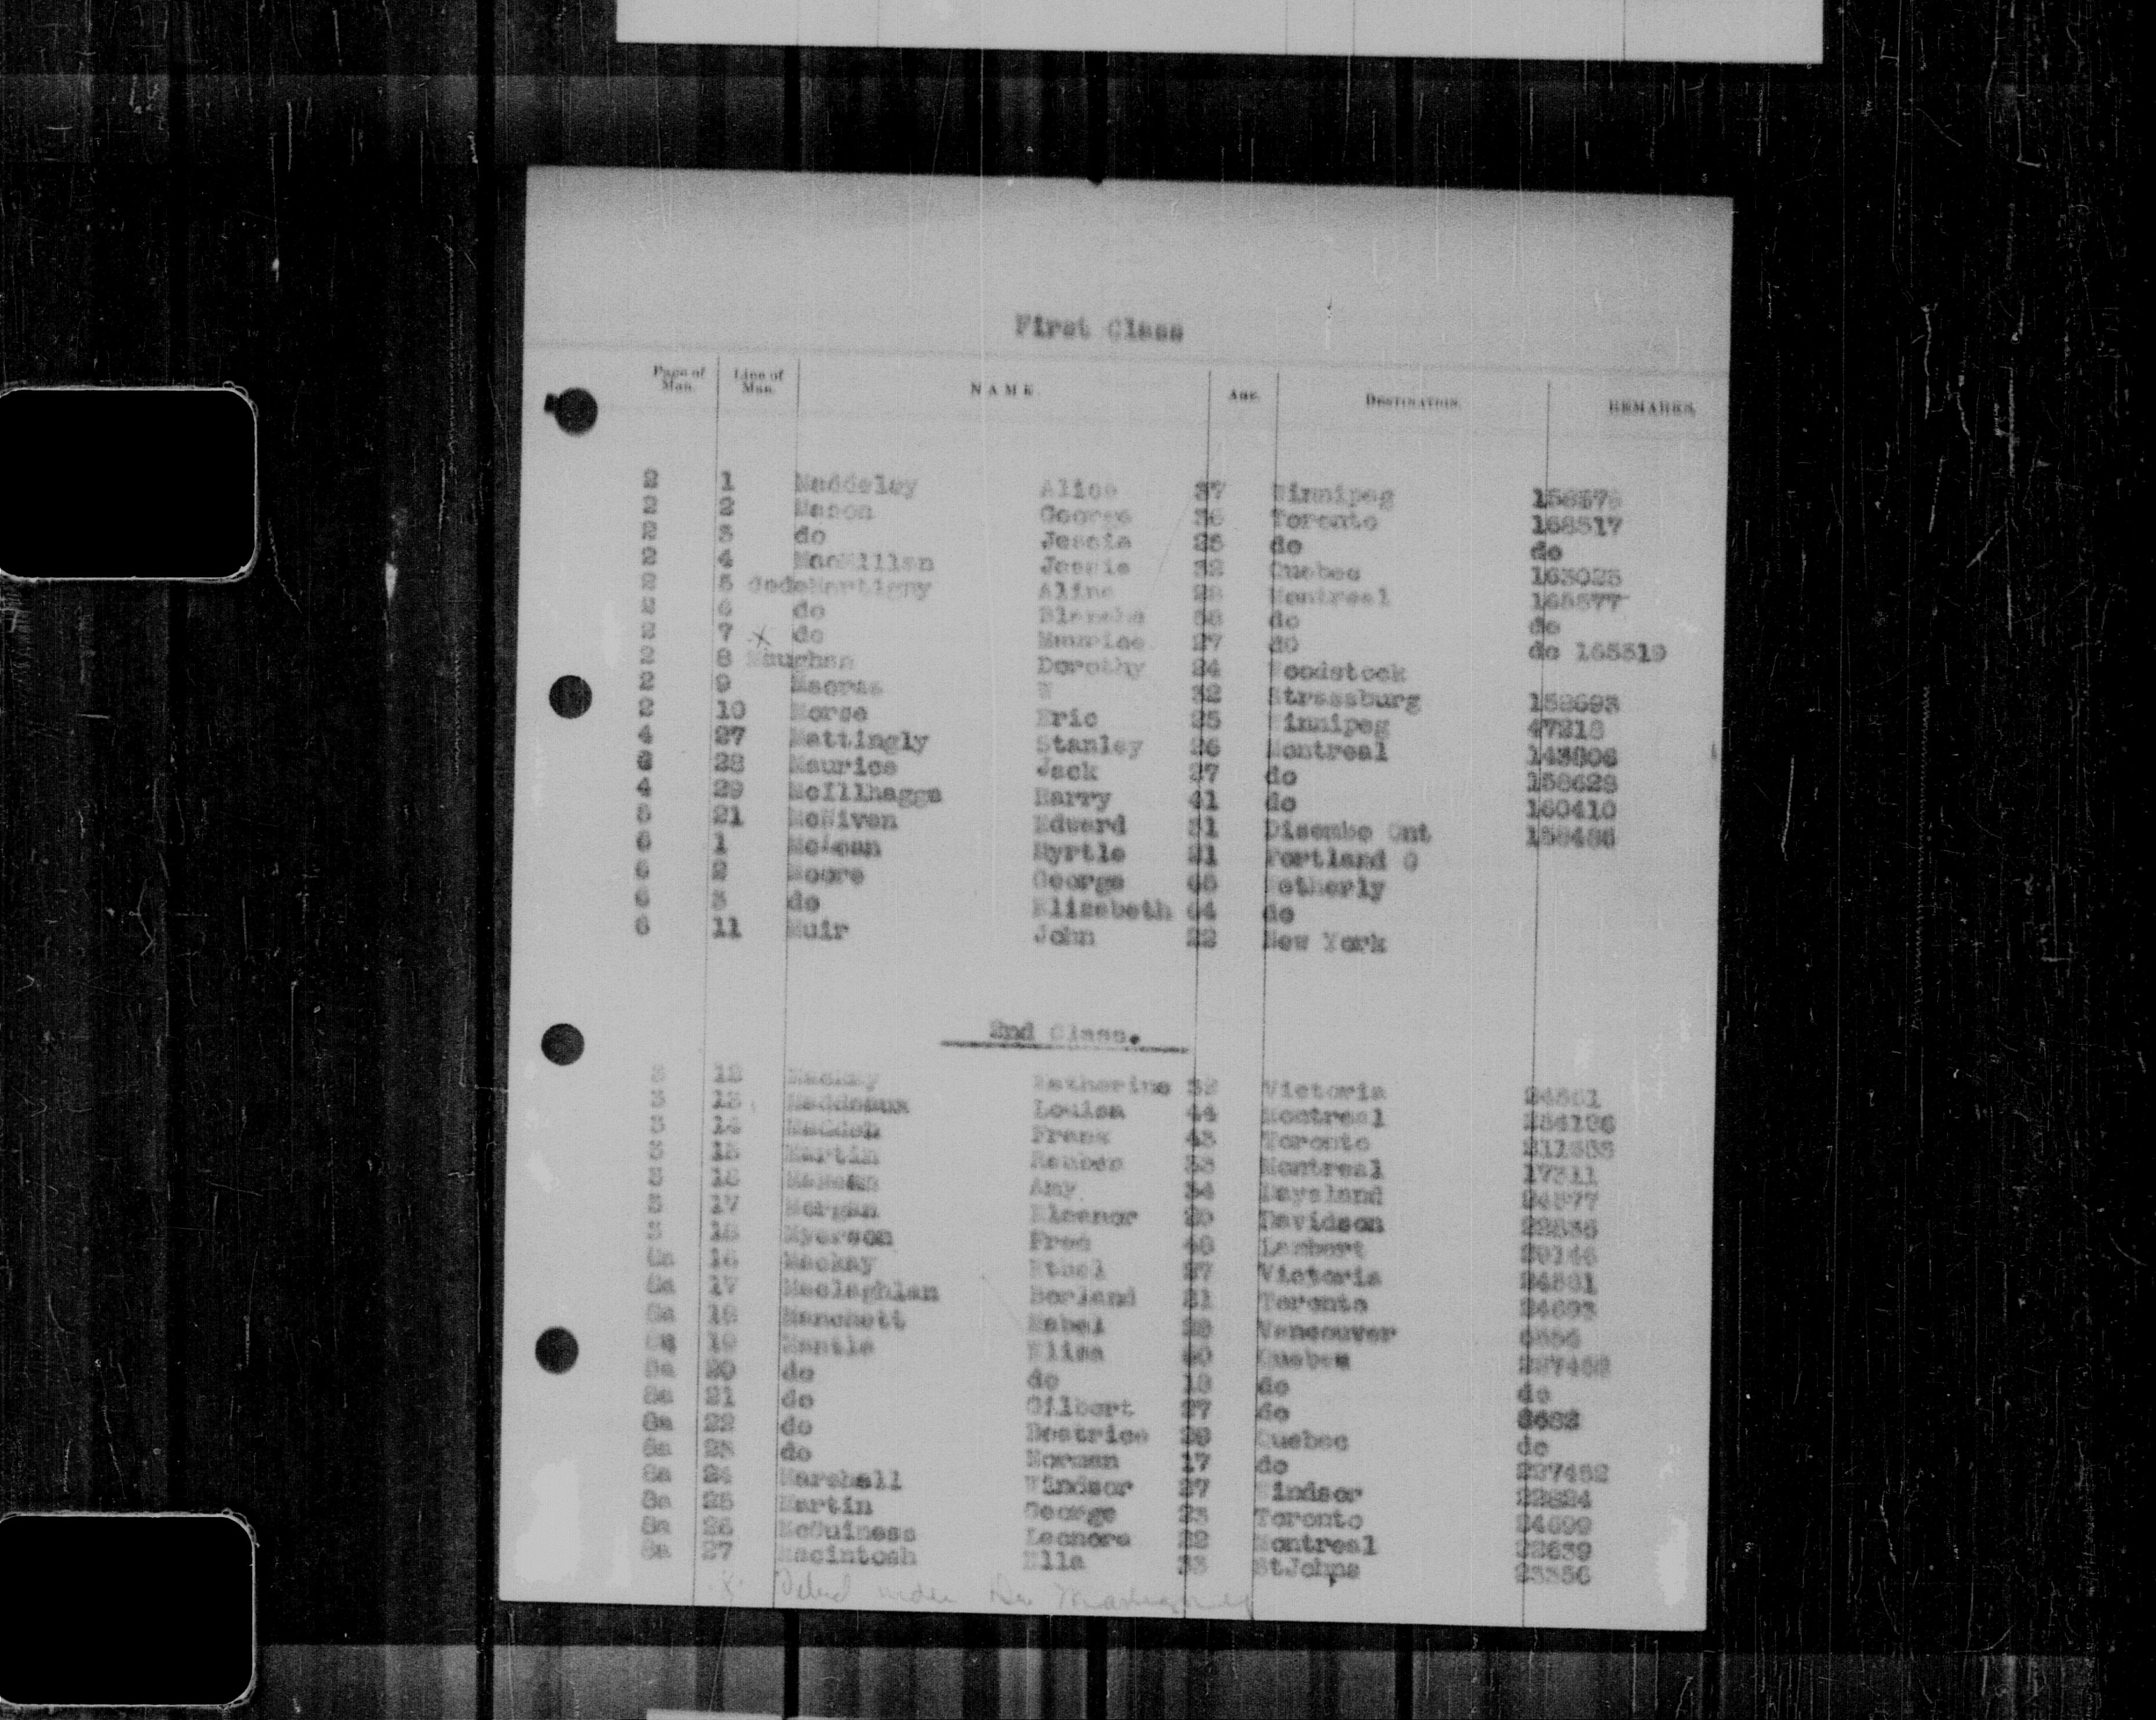 First Class
Page of Man. Line of Man. NAME. Age. DESTINATION. REMARKS.
2 1 Maddeley Alice 37 Winnipeg
2 2 Mason George 36 Toronto 168517
2 3 do Jessie 25 do do
2 4 MacMillan Jessie 32 Quebec 163025
2 5 dedeMartigny Aline 28 Montreal 165577
2 6 do Blanche do do
2 7 x do Maurice 27 do do 165519
2 8 Maughan Dorothy 24 Woodstock
2 9 Macrae W 32 Strassburg 158693
2 10 Morse Eric 25 Winnipeg 47218
4 27 Mattingly Stanley 26 Montreal 143806
28 Maurice Jack 27 do 158628
4 29 McIllhagga Harry 41 do 160410
5 21 McNiven Edward 31 Ont 158486
6 1 McLean Myrtle 21 Portland O
6 2 Moore George 65
6 3 do Elizabeth 64 do
6 11 Muir John 22 New York
2nd Class.
3 12 Mackay Katherine 32 Victoria
3 13 Maddeaux Louisa 44 Montreal
3 14 Madden Frank 43 Toronto
3 15 Martin Reuben 33 Montreal 17311
3 16 Amy 34 Daysland 24877
3 17 Morgan Eleanor 20 Davidson
3 18 Myerson Fred Lambert
8a 16 Mackay Ethel 27 Victoria
8a 17 Maclaghlan Borland 21 Toronto 24693
8a 18 Manchett Mabel 28 Vancouver
8a 19 Mantle Eliza Quebec
8a 20 do do 18 do do
8a 21 do Gilbert 27 do
8a 22 do Beatrice 28 Quebec do
8a 23 do Norman 17 do 227452
8a 24 Marshall Windsor 27 Windsor 22824
8a 25 Martin George 23 Toronto 24699
8a 26 McGuiness Leonora 22 Montreal 22639
8a 27 Macintosh Ella 33 StJohns 23356
x De Martigny